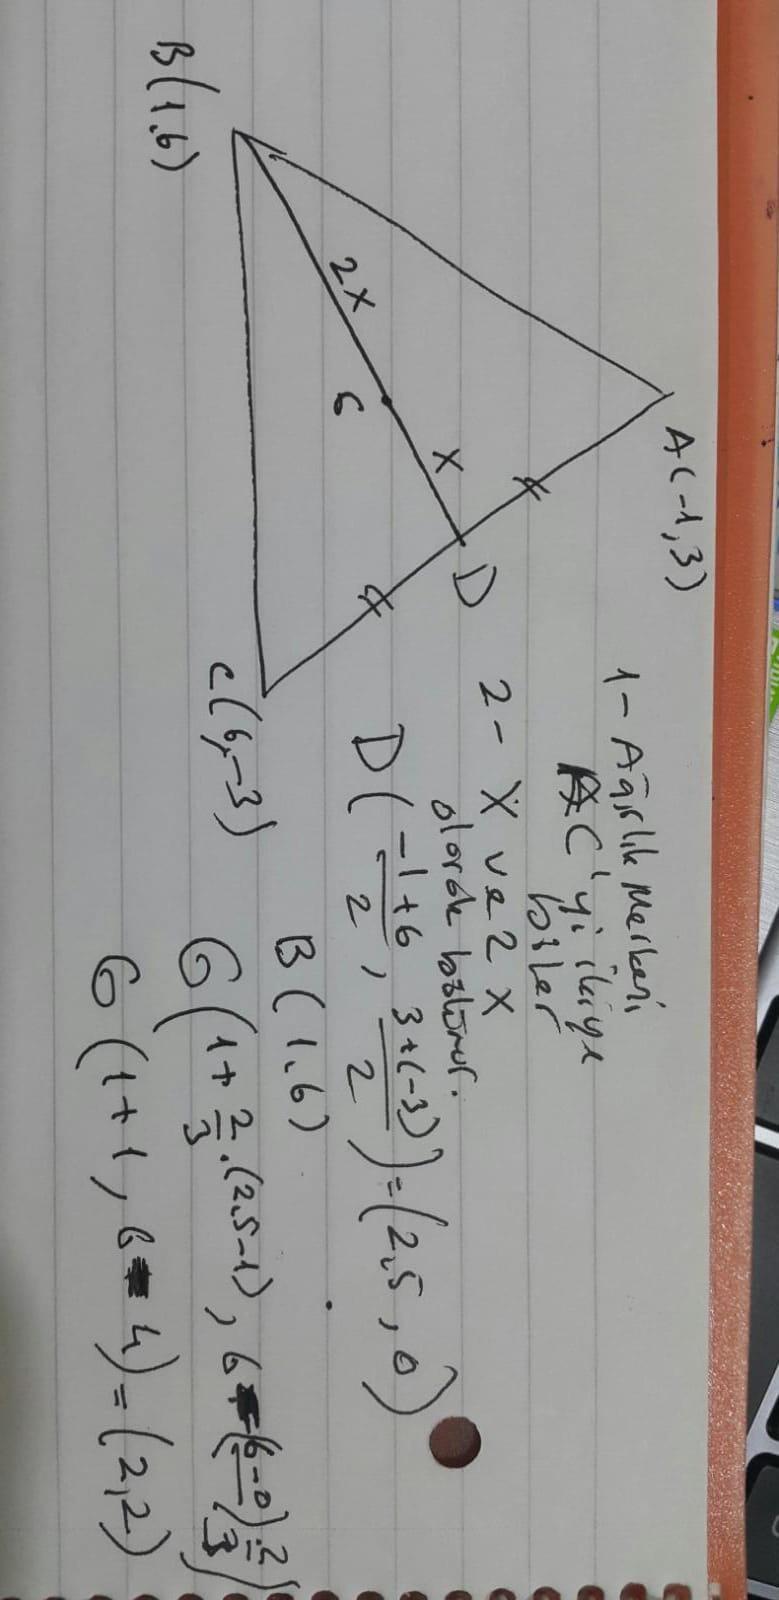 A(-1,3)
1- Ağırlık Merkezi
AC'yi ikiye
böler
D
2- X ve 2X
olarak bölünür.
X
2X
G
D(\frac{-1+6}{2}, \frac{3+(-3)}{2})=(2,5, 0)
B(1,6)
C(6,-3)
B(1,6)
G(1+\frac{2}{3}.(2,5-1), 6-(6-0).\frac{2}{3})
G(1+1, 6-4)=(2,2)